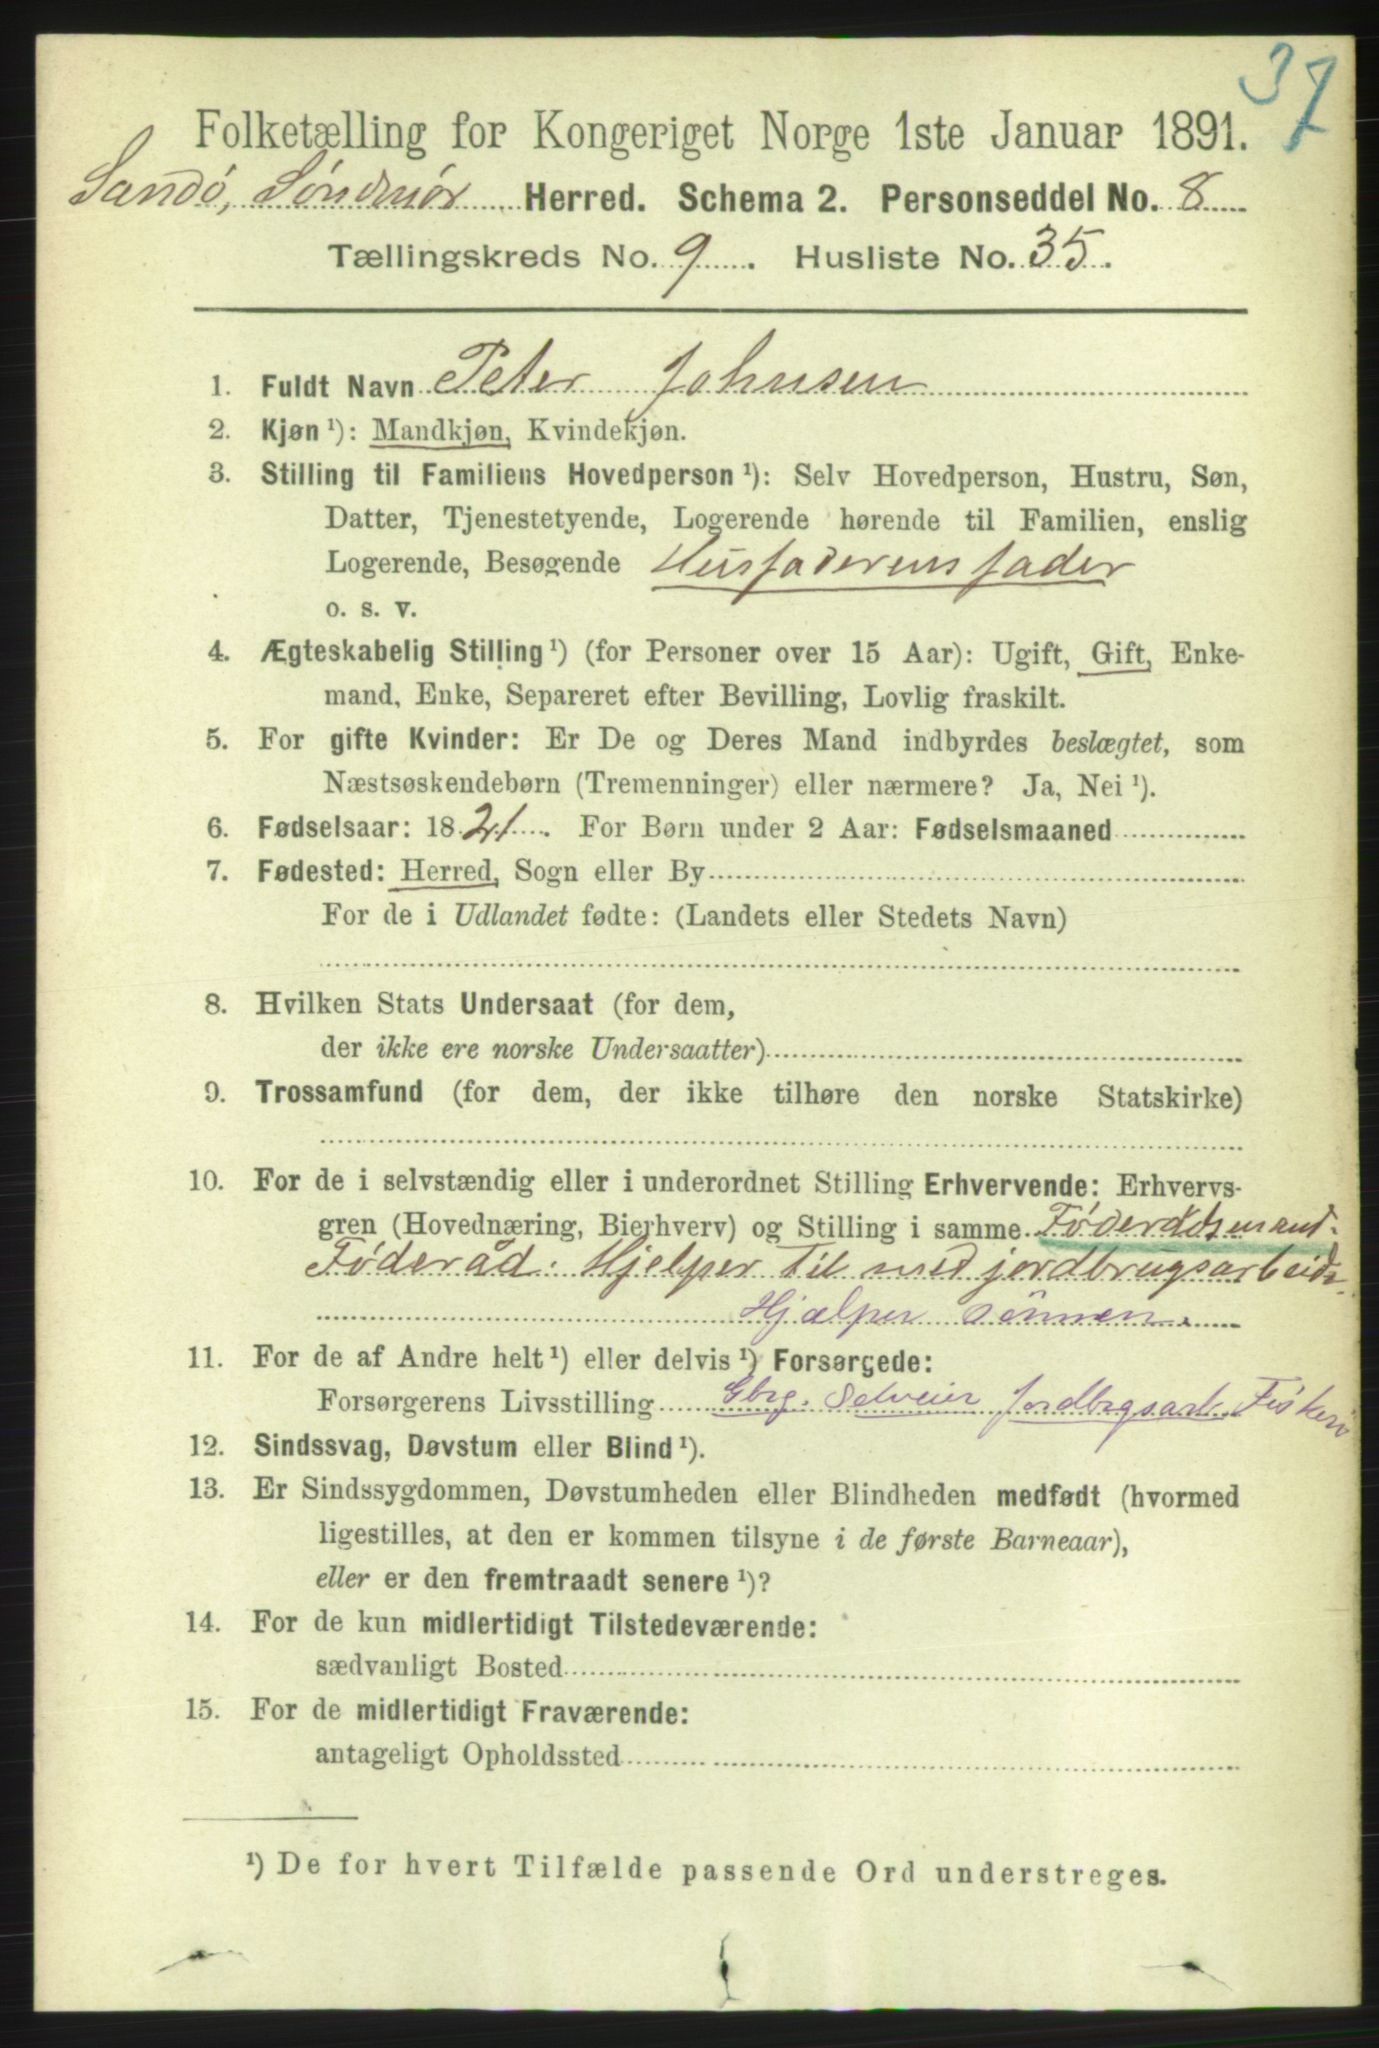 37
Folketælling for Kongeriget Norge 1ste Januar 1891.
Sandø, Søndmør Herred. Schema 2. Personseddel No. 8
Tællingskreds No. 9. Husliste No. 35.
1. Fuldt Navn Peter Johnsen
2. Kjøn ¹): Mandkjøn, Kvindekjøn.
3. Stilling til Familiens Hovedperson ¹): Selv Hovedperson, Hustru, Søn,
Datter, Tjenestetyende, Logerende hørende til Familien, enslig
Logerende, Besøgende Husfaderens fader
o. s. v.
4. Ægteskabelig Stilling ¹) (for Personer over 15 Aar): Ugift, Gift, Enke-
mand, Enke, Separeret efter Bevilling, Lovlig fraskilt.
5. For gifte Kvinder: Er De og Deres Mand indbyrdes beslægtet, som
Næstsøskendebørn (Tremenninger) eller nærmere? Ja, Nei ¹).
6. Fødselsaar: 1821. For Børn under 2 Aar: Fødselsmaaned
7. Fødested: Herred, Sogn eller By
For de i Udlandet fødte: (Landets eller Stedets Navn)
8. Hvilken Stats Undersaat (for dem,
der ikke ere norske Undersaatter)
9. Trossamfund (for dem, der ikke tilhøre den norske Statskirke)
10. For de i selvstændig eller i underordnet Stilling Erhvervende: Erhvervs-
gren (Hovednæring, Bierhverv) og Stilling i samme Føderådsmand.
Føderåd. Hjelper til med jordbrugsarbeide
Hjælper sønnen.
11. For de af Andre helt ¹) eller delvis ¹) Forsørgede:
Forsørgerens Livsstilling Gbrg. Selveier Jordbrgsarb. Fiskeri
12. Sindssvag, Døvstum eller Blind ¹).
13. Er Sindssygdommen, Døvstumheden eller Blindheden medfødt (hvormed
ligestilles, at den er kommen tilsyne i de første Barneaar),
eller er den fremtraadt senere ¹)?
14. For de kun midlertidigt Tilstedeværende:
sædvanligt Bosted
15. For de midlertidigt Fraværende:
antageligt Opholdssted
¹) De for hvert Tilfælde passende Ord understreges.